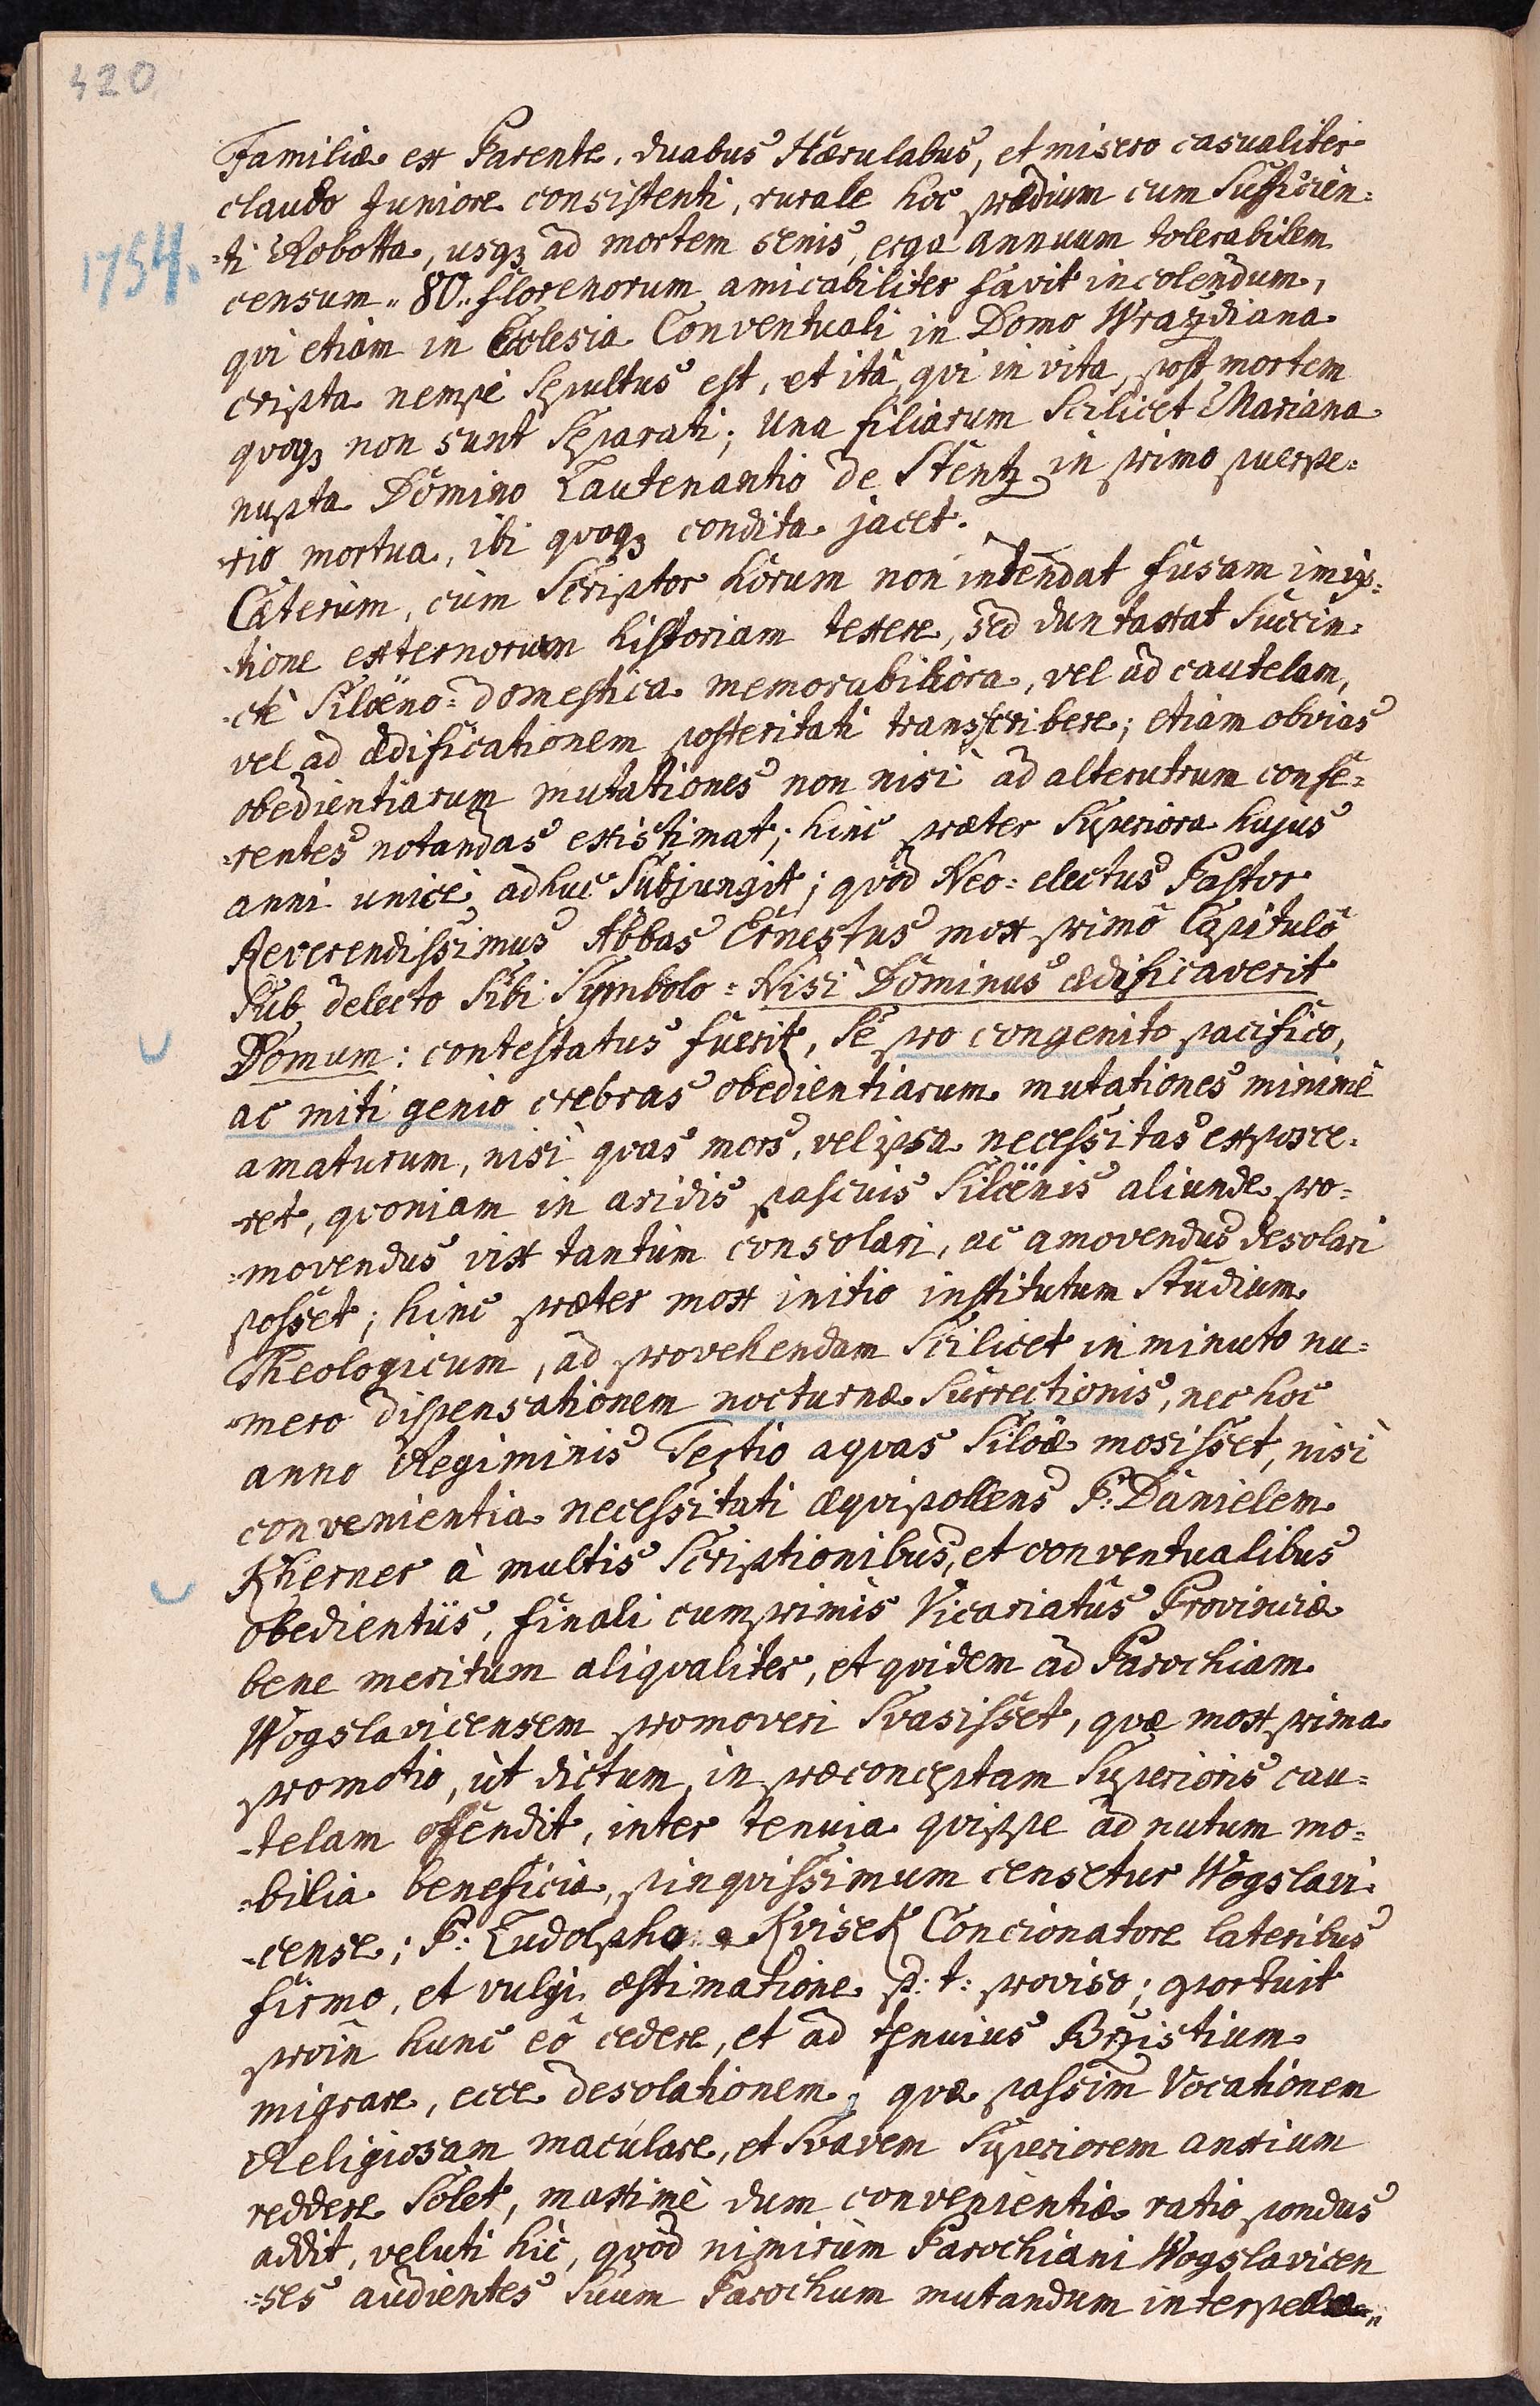 420
Familiæ ex Parente, duabus Hærulabus, et misero casualiter
claudo Juniore consistenti, rurale hoc prædium cum Sufficien=
1754.
=ti Robotta, usqз ad mortem senis, erga annuum tolerabilem
censum „ 80 „ florenorum amicabiliter favit incolendum,
qui etiam in Ecclesia Conventuali in Domo Wraždiana
cripta nempè Sepultus est, et ità, qui in vita, post mortem
quoqз non sunt Separati; Una filiarum Scilicet Mariana
nupta Domino Lautenantio de Stentz in primo puerpe=
=rio mortua, ibi quoqз condita jacet.
Cæterùm, cùm Scriptor horum non intendat fusam
=tione externorum historiam texere, sed duntaxat Succin=
=ctè Siloëno=domestica memorabiliora, vel ad cautelam,
vel ad ædificationem posteritati transscribere; etiam obvias
obedientiarum mutationes non nisi ad alterutrum confe=
=rentes notandas existimat; hinc præter Superiora hujus
anni unicè adhuc Subjungit; quòd Neo=electus Pastor
Reverendissimus Abbas Ernestus mox primô Capitulô
Sub delecto Sibi Symbolo = Nisi Dominus ædificaverit
Domum: contestatus fuerit, Se pro congenito pacifico,
ac miti genio crebras obedientiarum mutationes minimè
amaturum, nisi quas mors, vel ipsa necessitas exposce=
=ret, quoniam in aridis pascuis Siloënis aliunde pro=
=movendus vix tantùm consolari, ac amovendus desolari
posset; hinc præter mox initio institutum Studium
Theologicum, ad provehendam Scilicet in minuto nu=
=mero dispensationem nocturnæ Surrectionis, nec hoc
anno Regiminis Tertio aquas Siloæ movisset, nisi
convenientia necessitati æquipollens P: Danielem
Kherner à multis Scriptionibus, et conventualibus
obedientiis, finali cumprimis Vicariatûs Provinciæ
bene meritum aliqualiter, et quidem ad Parochiam
Wogslavicensem promoveri Svasisset, quæ mox prima
promotio, ùt dictum, in præconceptam Superioris cau=
=telam offendit, inter tenuia quippe ad nutum mo=
=bilia beneficia, pinquissimum censetur Wogslavi=
=cense; P: Ludolpho Kvisek Concionatore lateribus
firmo, et vulgi æstimatione p: t: proviso; oportuit
proin hunc eô cedere, et ad tenuius Brzistium
migrare, ecce desolationem, quæ passim Vocationem
Religiosam maculare, et Svavem Superiorem anxium
reddere Solet, maximè dum convenientiæ ratio pondus
addit, veluti hìc, quòd nimirùm Parochiani Wogslavicen
=ses audientes Suum Parochum mutandum